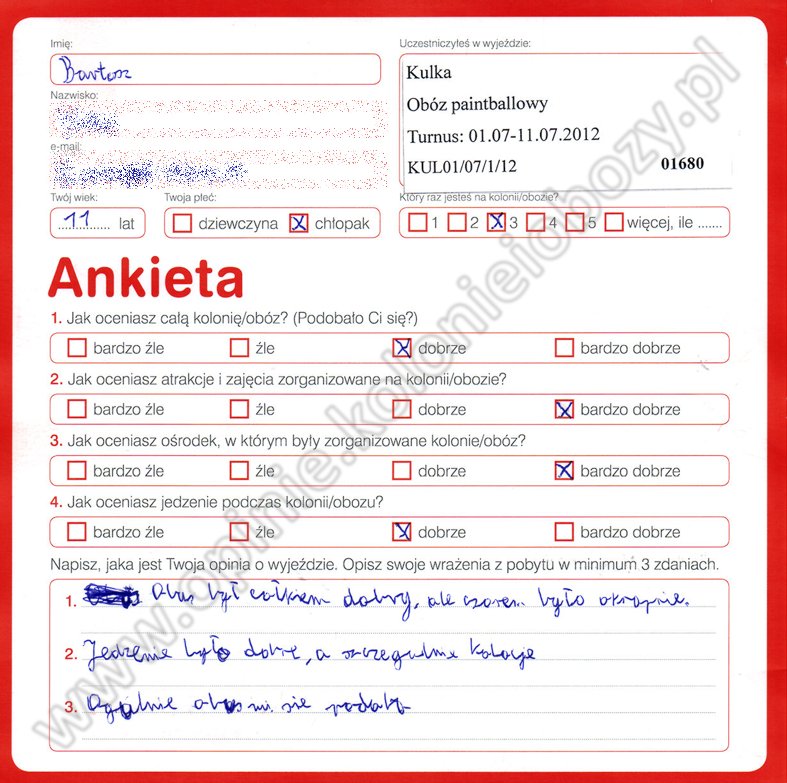 Imię:
Bartosz
Uczestniczyłeś w wyjeździe:
Kulka
Obóz paintballowy
Turnus: 01.07-11.07.2012
KUL01/07/1/12 01680
Nazwisko:
e-mail:
Twój wiek:
11 lat
Twoja płeć:
dziewczyna x chłopak
Który raz jesteś na kolonii/obozie?
1 2 x 3 4 5 więcej, ile .......
Ankieta
1. Jak oceniasz całą kolonię/obóz? (Podobało Ci się?)
bardzo źle źle x dobrze bardzo dobrze
2. Jak oceniasz atrakcje i zajęcia zorganizowane na kolonii/obozie?
bardzo źle źle dobrze x bardzo dobrze
3. Jak oceniasz ośrodek, w którym były zorganizowane kolonie/obóz?
bardzo źle źle dobrze x bardzo dobrze
4. Jak oceniasz jedzenie podczas kolonii/obozu?
bardzo źle źle x dobrze bardzo dobrze
Napisz, jaka jest Twoja opinia o wyjeździe. Opisz swoje wrażenia z pobytu w minimum 3 zdaniach.
1. był całkiem dobry, ale było okropnie.
2. Jedzenie było dobre, a kolacje
3. mi sie
www.opinie.kolonieiobozy.pl